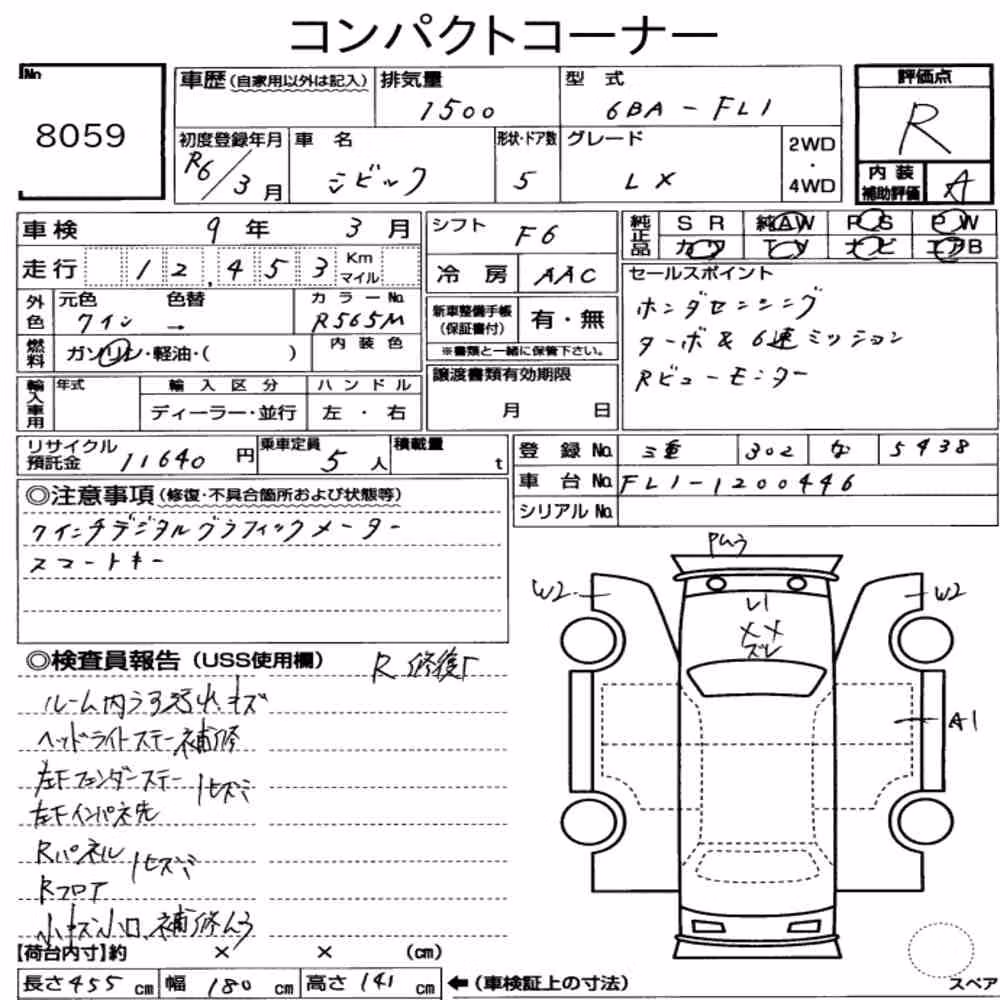 コンパクトコーナー
No
8059
車歴(自家用以外は記入)
排気量
1500
型 式
6BA-FL1
評価点
R
初度登録年月
R6/3月
車 名
シビック
形状・ドア数
5
グレード
LX
2WD
・
4WD
内 装
補助評価
A
車検 9年 3月
シフト F6
純正品
SR 純AW PS PW
カワ TV ナビ エアB
走行 12,453 Km マイル
冷 房 AAC
セールスポイント
ホンダセンシング
ターボ & 6速ミッション
Rビューモニター
外色
元色 ワイン
色替 →
カラーNo.
R565M
新車整備手帳
(保証書付)
有・無
※書類と一緒に保管下さい。
燃料
ガソリン・軽油・( )
内 装 色
輸入車用
年式
輸 入 区 分
ディーラー・並行
ハ ン ド ル
左 ・ 右
譲渡書類有効期限
月 日
リサイクル
預託金 11640 円
乗車定員
5人
積載量
t
登 録 No. 三重 302 な 5438
車 台 No. FL1-1200446
シリアル No.
◎注意事項(修復・不具合箇所および状態等)
7インチデジタルグラフィックメーター
スマートキー
◎検査員報告(USS使用欄)
R 修復
ルーム内うす汚れキズ
ヘッドライトステー補修
左Fフェンダーステー
左Fインパネ先
ヒズミ
Rパネル
Rフロア
ヒズミ
小キズ小凹、補修ムラ
Pムラ
W2
W2
L1
XX
ズレ
A1
【荷台内寸】約 × × (cm)
長さ455cm 幅 180cm 高さ 141cm
←(車検証上の寸法)
スペア